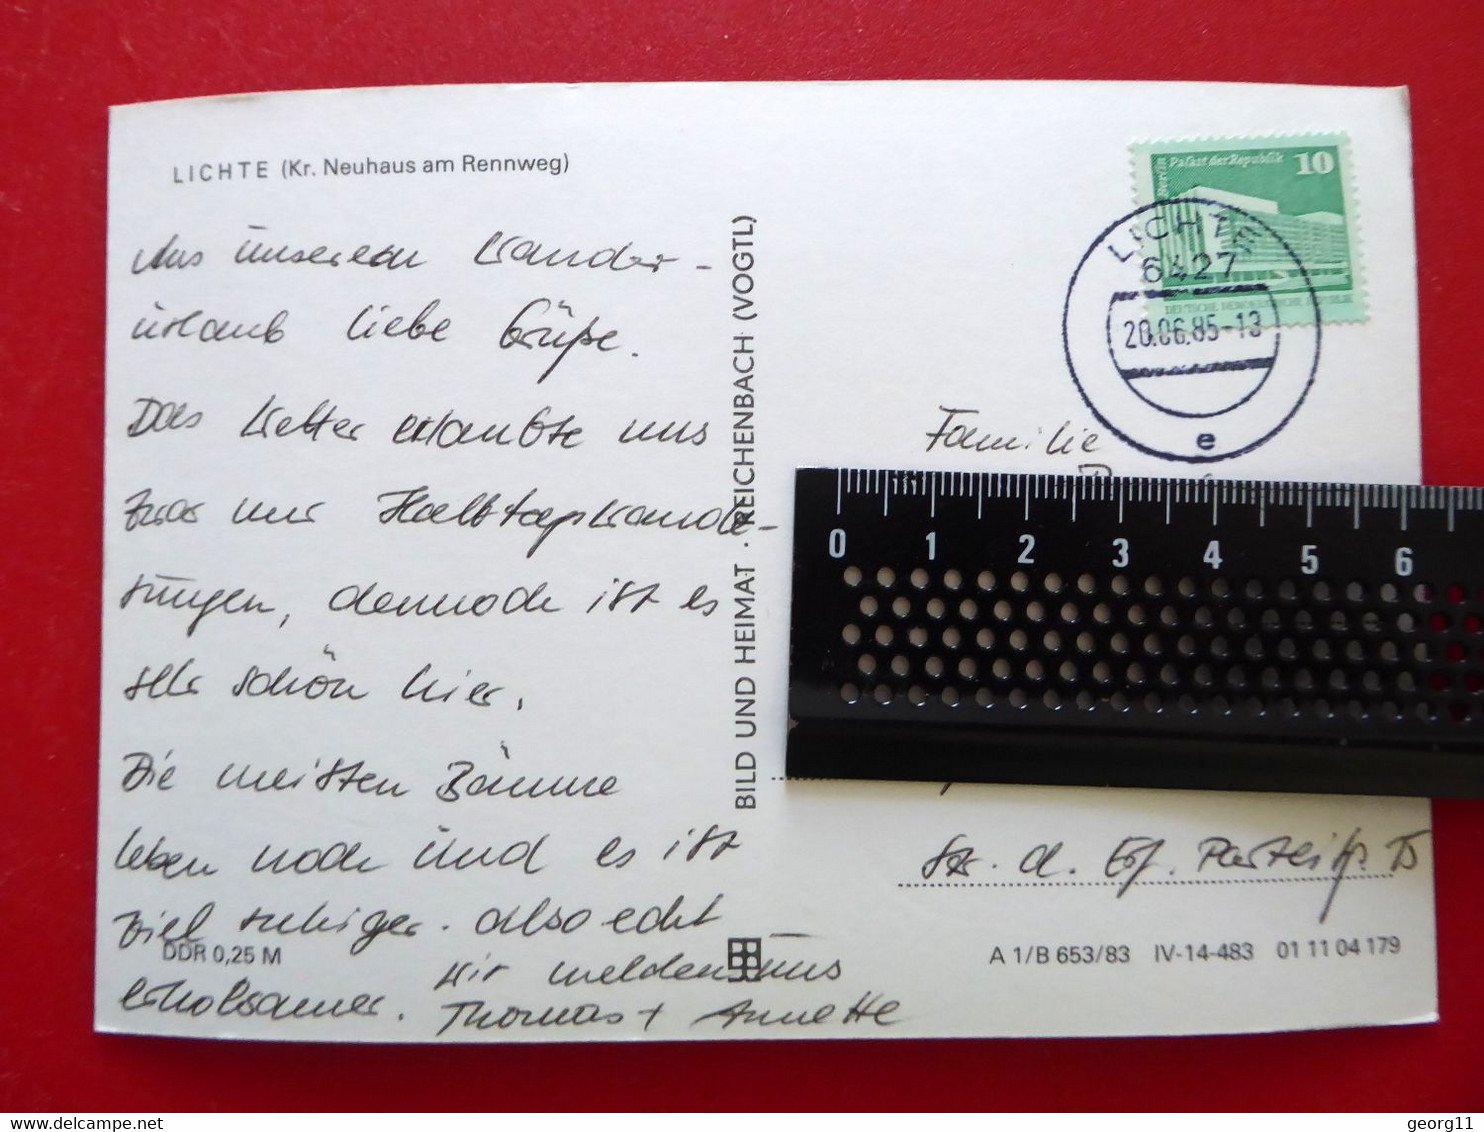 LICHTE (Kr. Neuhaus am Rennweg)
Aus unserem Wander-
urlaub liebe Grüße.
Das Wetter erlaubte uns
zwar nur Halbtagswande-
rungen, dennoch ist es
sehr schön hier.
Die meisten Bäume
leben noch und es ist
viel ruhiger. also echt
erholsamer.
Wir melden uns
Thomas + Annette
DDR 0,25 M
BILD UND HEIMAT · REICHENBACH (VOGTL)
Berlin Palast der Republik 10
DEUTSCHE DEMOKRATISCHE REPUBLIK
LICHTE
6427
20.06.85-13
e
Familie
0 1 2 3 4 5 6
Str. d.
A 1/B 653/83 IV-14-483 01 11 04 179
delcampe.net
georg11